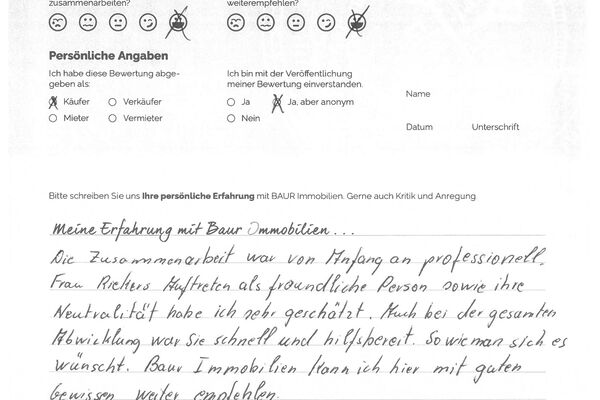 zusammenarbeiten?
weiterempfehlen?
Persönliche Angaben
Ich habe diese Bewertung abge-
geben als:
Käufer
Verkäufer
Mieter
Vermieter
Ich bin mit der Veröffentlichung
meiner Bewertung einverstanden.
Ja
Ja, aber anonym
Nein
Name
Datum
Unterschrift
Bitte schreiben Sie uns Ihre persönliche Erfahrung mit BAUR Immobilien. Gerne auch Kritik und Anregung
Meine Erfahrung mit Baur Immobilien...
Die Zusammenarbeit war von Anfang an professionell.
Frau Riekers Auftreten als freundliche Person sowie ihre
Neutralität habe ich sehr geschätzt. Auch bei der gesamten
Abwicklung war Sie schnell und hilfsbereit. So wie man sich es
wünscht. Baur Immobilien kann ich hier mit guten
Gewissen weiter empfehlen.